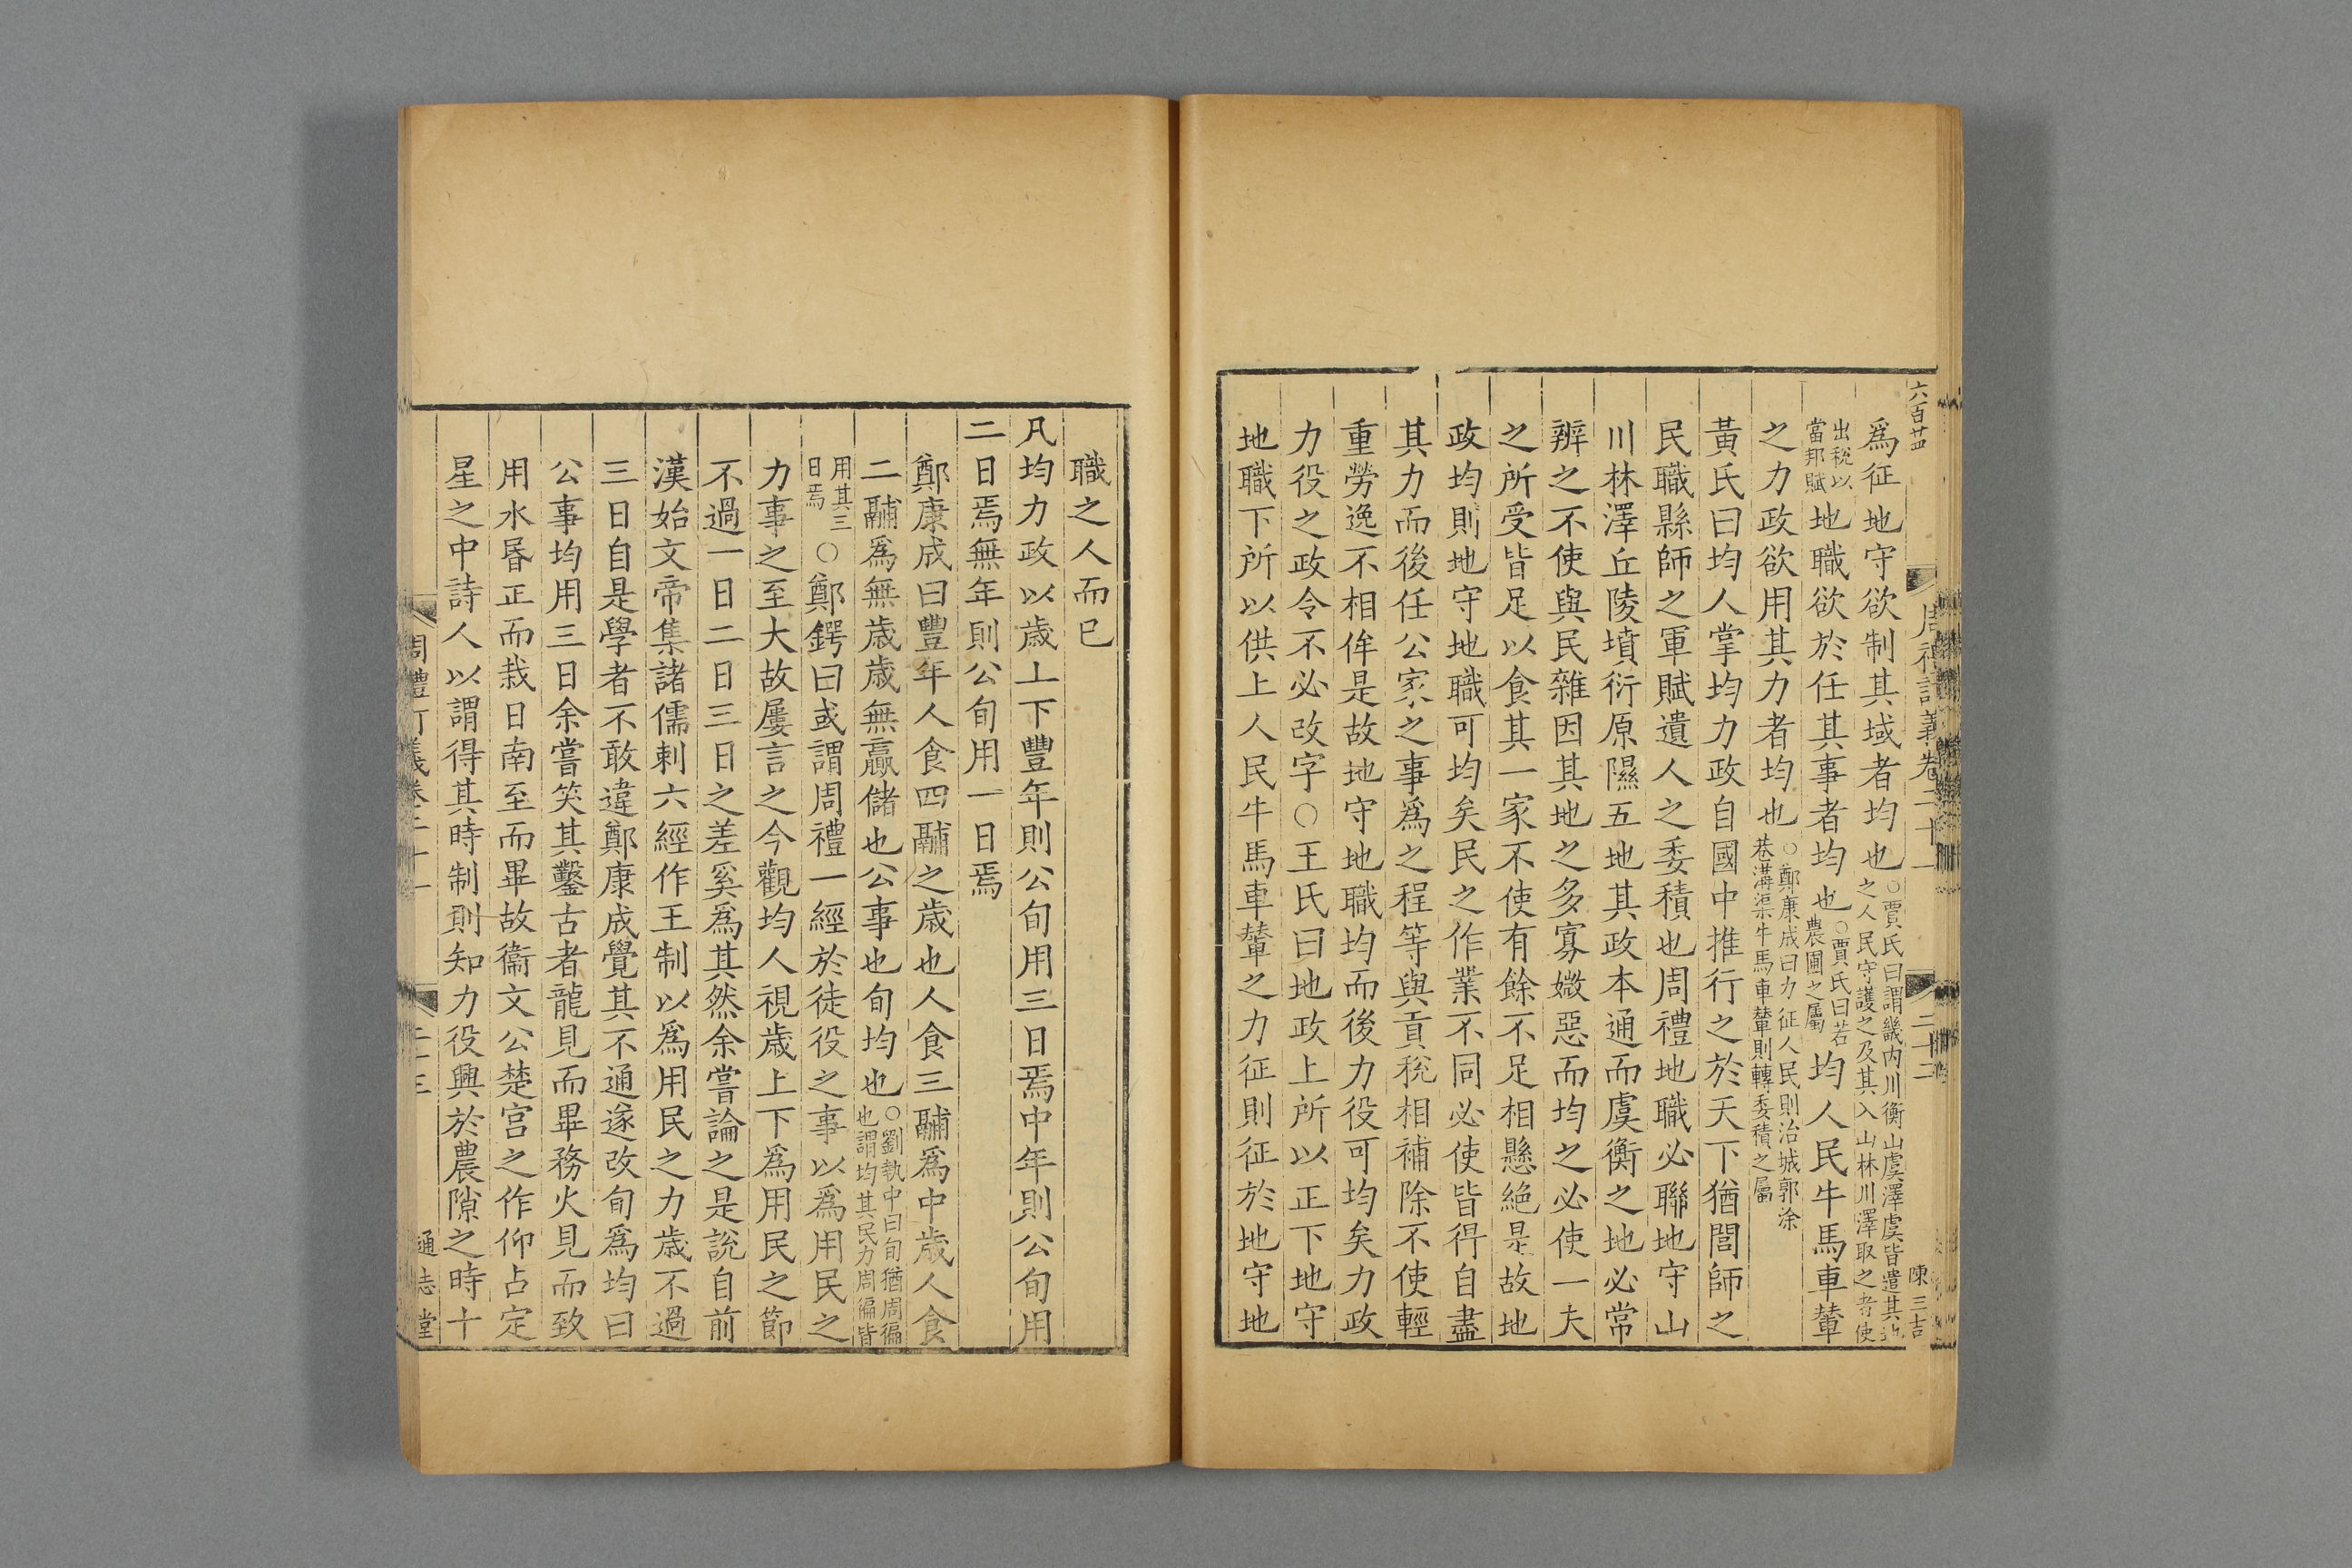 六百廿四
周禮訂義卷二十一
二十二
陳三吉
爲征地守欲制其域者均也○賈氏曰謂畿内川衡山虞澤虞皆遣其地
之人民守護之及其入山林川澤取之者使
出稅以
當邦賦地職欲於任其事者均也○賈氏曰若
農圃之屬均人民牛馬車輦
之力政欲用其力者均也○鄭康成曰力征人民則治城郭涂
巷溝渠牛馬車輦則轉委積之屬
黃氏曰均人掌均力政自國中推行之於天下猶閭師之
民職縣師之軍賦遺人之委積也周禮地職必聯地守山
川林澤丘陵墳衍原隰五地其政本通而虞衡之地必常
辨之不使與民雜因其地之多寡媺惡而均之必使一夫
之所受皆足以食其一家不使有餘不足相懸絕是故地
政均則地守地職可均矣民之作業不同必使皆得自盡
其力而後任公家之事爲之程等與貢稅相補除不使輕
重勞逸不相侔是故地守地職均而後力役可均矣力政
力役之政令不必改字○王氏曰地政上所以正下地守
地職下所以供上人民牛馬車輦之力征則征於地守地
職之人而已
凡均力政以歲上下豐年則公旬用三日焉中年則公旬用
二日焉無年則公旬用一日焉
鄭康成曰豐年人食四鬴之歲也人食三鬴爲中歲人食
二鬴爲無歲歲無贏儲也公事也旬均也○劉執中曰旬猶周徧
也謂均其民力周徧皆
用其三
日焉○鄭鍔曰或謂周禮一經於徒役之事以爲用民之
力事之至大故屢言之今觀均人視歲上下爲用民之節
不過一日二日三日之差奚爲其然余嘗論之是說自前
漢始文帝集諸儒剌六經作王制以爲用民之力歲不過
三日自是學者不敢違鄭康成覺其不通遂改旬爲均曰
公事均用三日余嘗笑其鑿古者龍見而畢務火見而致
用水昬正而栽日南至而畢故衞文公楚宮之作仰占定
星之中詩人以謂得其時制則知力役興於農隙之時十
周禮訂義卷二十一
二十三
通志堂